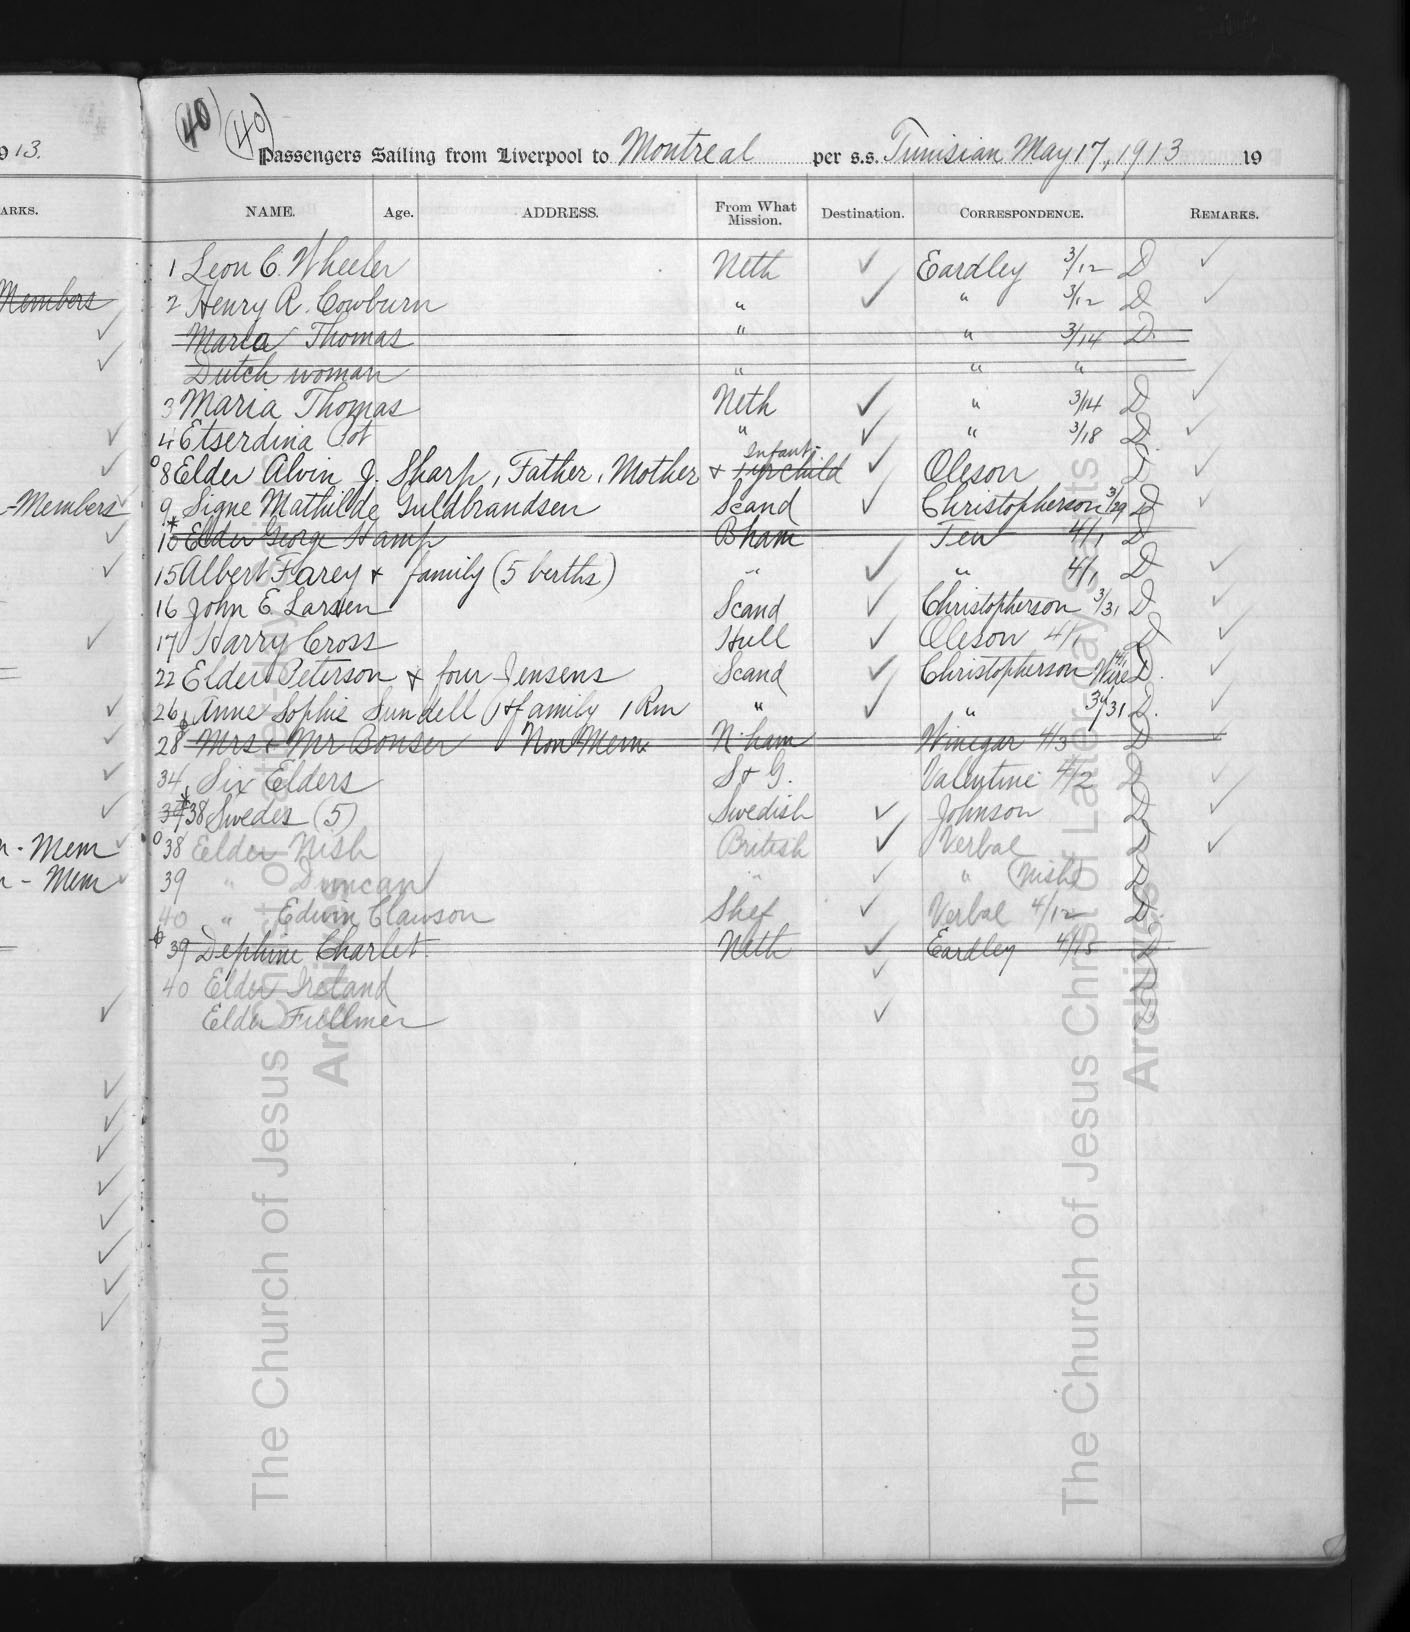 913.
ARKS.
Members
-Members
- Mem
- Mem
(40) (40)
Passengers Sailing from Liverpool to Montreal per s.s. Tunisian May 17, 1913 19
NAME. Age. ADDRESS. From What Mission. Destination. CORRESPONDENCE. REMARKS.
1 Leon C. Wheeler Neth ✓ Eardley 3/12 D ✓
2 Henry R. Cowburn " ✓ " 3/12 D ✓
Maria Thomas " " 3/14 D.
Dutch woman " " "
3 Maria Thomas Neth ✓ " 3/14 D ✓
4 Etserdina Pot " ✓ " 3/18 D. ✓
Infant
8 Elder Alvin J. Sharp, Father, Mother & child ✓ Oleson D ✓
9 Signe Mathilde Guldbrandsen Scand ✓ Christopherson 3/29 D ✓
10 Elder George Hamp Bham Teu 4/1 D
15 Albert Farey & family (5 berths) " ✓ " 4/1 D ✓
16 John E. Larsen Scand ✓ Christopherson 3/31 D ✓
17 Harry Cross Hull ✓ Oleson 4/1 D ✓
22 Elder Peterson & four Jensens Scand ✓ Christopherson Wire D. ✓
26 Anne Sophie Sundell & family 1 Rm " ✓ " 3/31 D. ✓
28 Mrs & Mr Bonser Non Mem. N'ham Winegar 4/3 D ✓
34 Six Elders S & G. Valentine 4/2 D ✓
39 38 Swedes (5) Swedish ✓ Johnson D ✓
38 Elder Nish British ✓ Verbal D ✓
39 " Duncan " ✓ " (Nish) D
40 " Edwin Clawson Shef ✓ Verbal 4/12 D.
39 Dephine Charlet Neth ✓ Eardley 4/15 D
40 Elder Ireland ✓
Elder Fullmer ✓
The Church of Jesus Christ of Latter-day Saints
Archives
The Church of Jesus Christ of Latter-day Saints
Archives